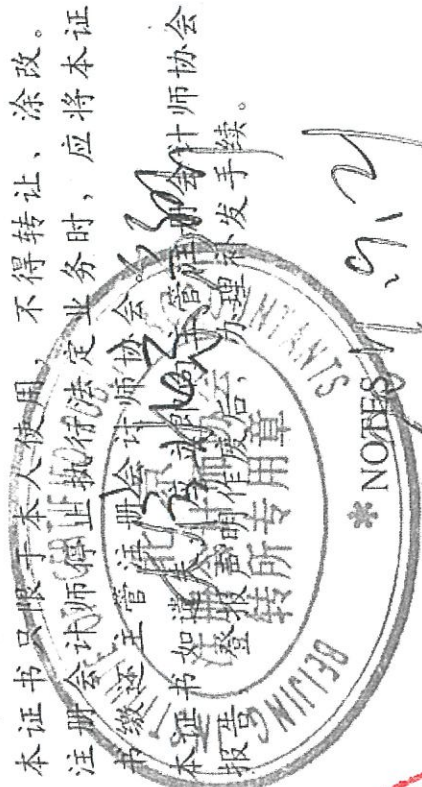 本证书只限于本人使用，不得转让、涂改。
注册会计师停止执行法定业务时，应将本证
书缴还主管注册会计师协会。
本证书如遗失，应立即向主管注册会计师协会
报告，登报声明作废后，办理补发手续。
NOTES
BEIJING
转所专用章